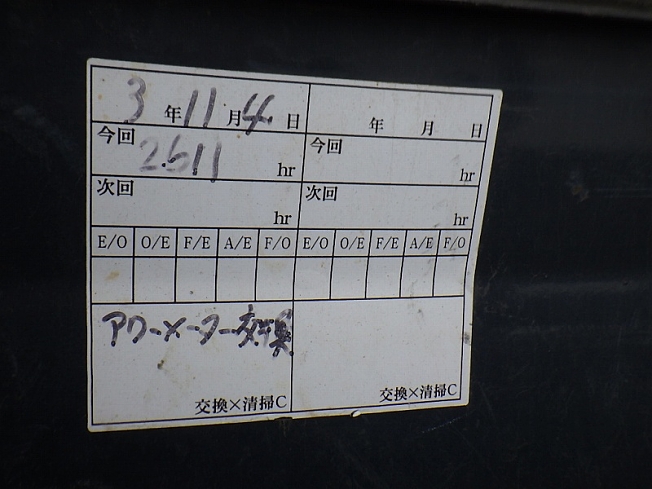 3年11月4日 年 月 日
今回 2611 hr 今回 hr
次回 hr 次回 hr
E/O O/E F/E A/E F/O E/O O/E F/E A/E F/O
アワーメーター交換
交換×清掃C 交換×清掃C